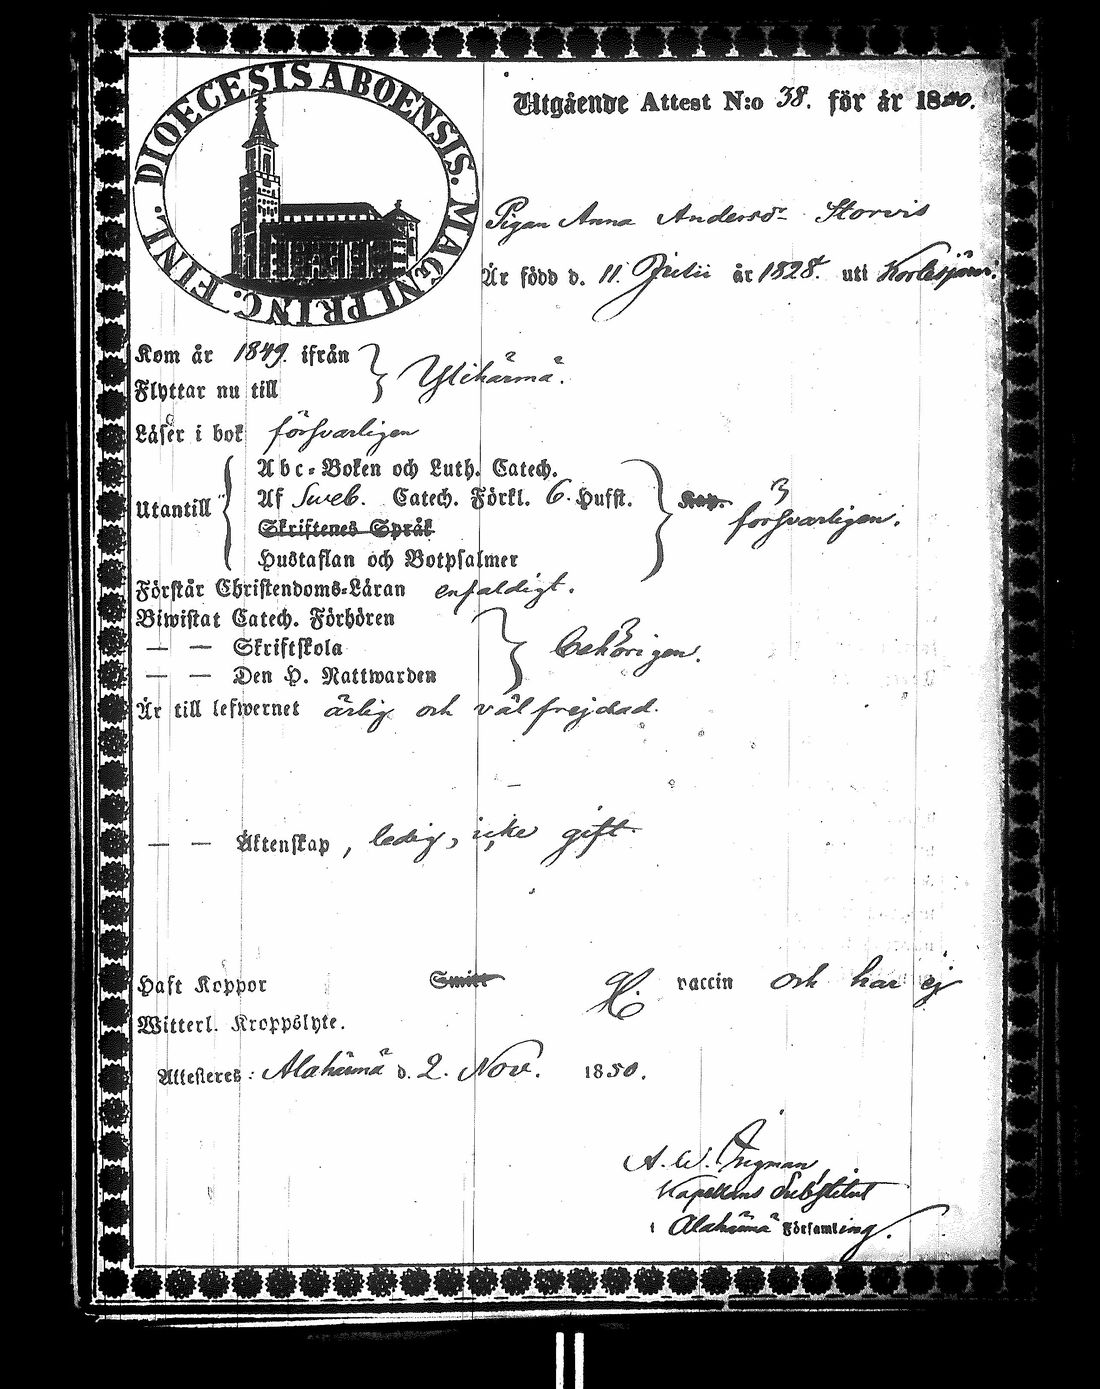 DIOECESIS ABOENSIS. MAGNI PRINC. FINL.
Utgående Attest N:o 38. för år 1850.
Pigan Anna Andersdr Storvis
Är född d. 11. Julii år 1828. uti
Kom år 1849. ifrån
Flyttar nu till } Ylihärmä.
Läser i bok försvarligen
Abc-Boken och Luth. Catech.
Utantill { Af Sveb. Catech. Förkl. 6. Hufst. } Kap. försvarligen.
Skriftenes Språk
Hustaflan och Botpsalmer
Förstår Christendoms-Läran enfaldigt.
Biwistat Catech. Förhören
— — Skriftskola } behörigen.
— — Den H. Nattwarden
Är till lefwernet ärlig och väl frejdad.
— — Äktenskap, ledig, icke gift
Haft Koppor Smitt H. vaccin och har ej
Witterl. Kroppslyte.
Attesteres: Alahärmä d. 2. Nov. 1850.
A. W. Ingman
Kapellans Substitut
i Alahärmä Församling.